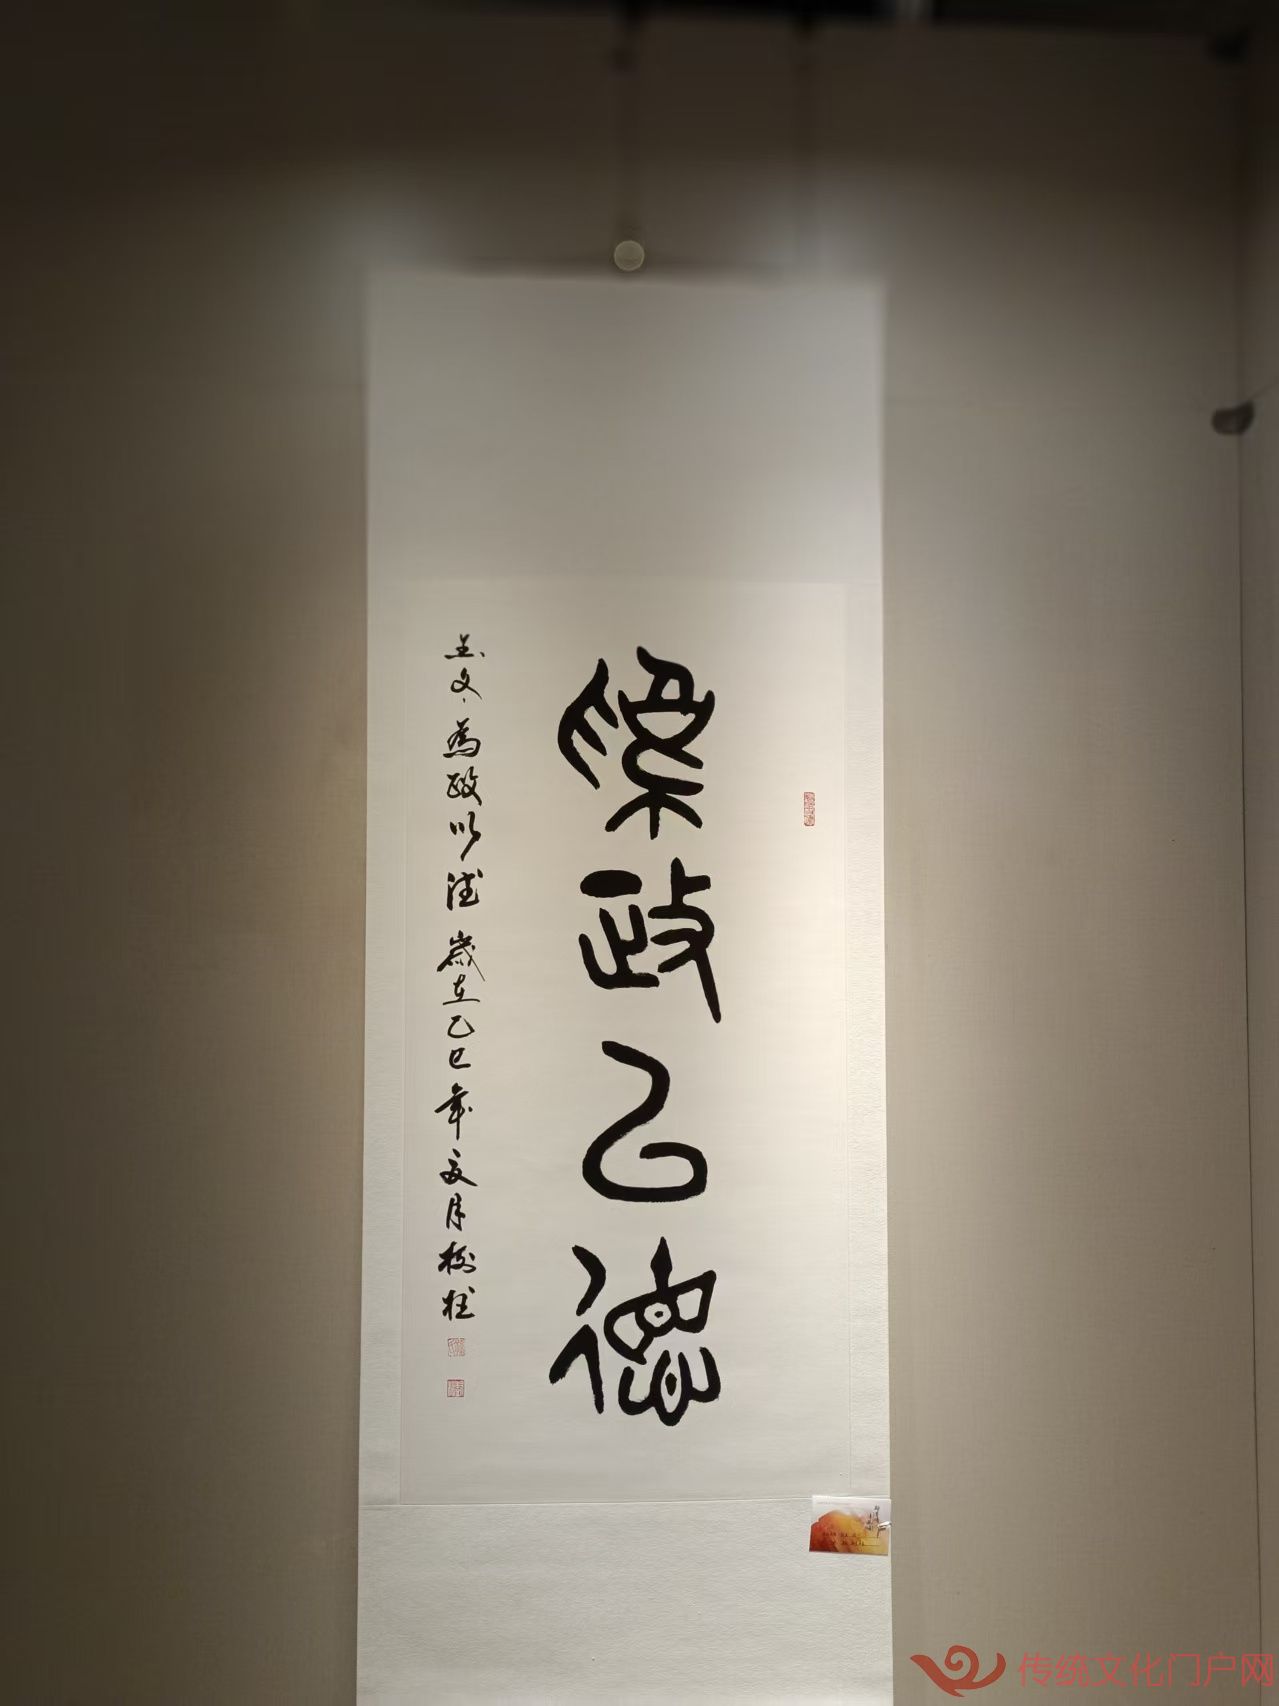 為政以德
金文、為政以德 歲在乙巳年夏月樹柱
传统文化门户网